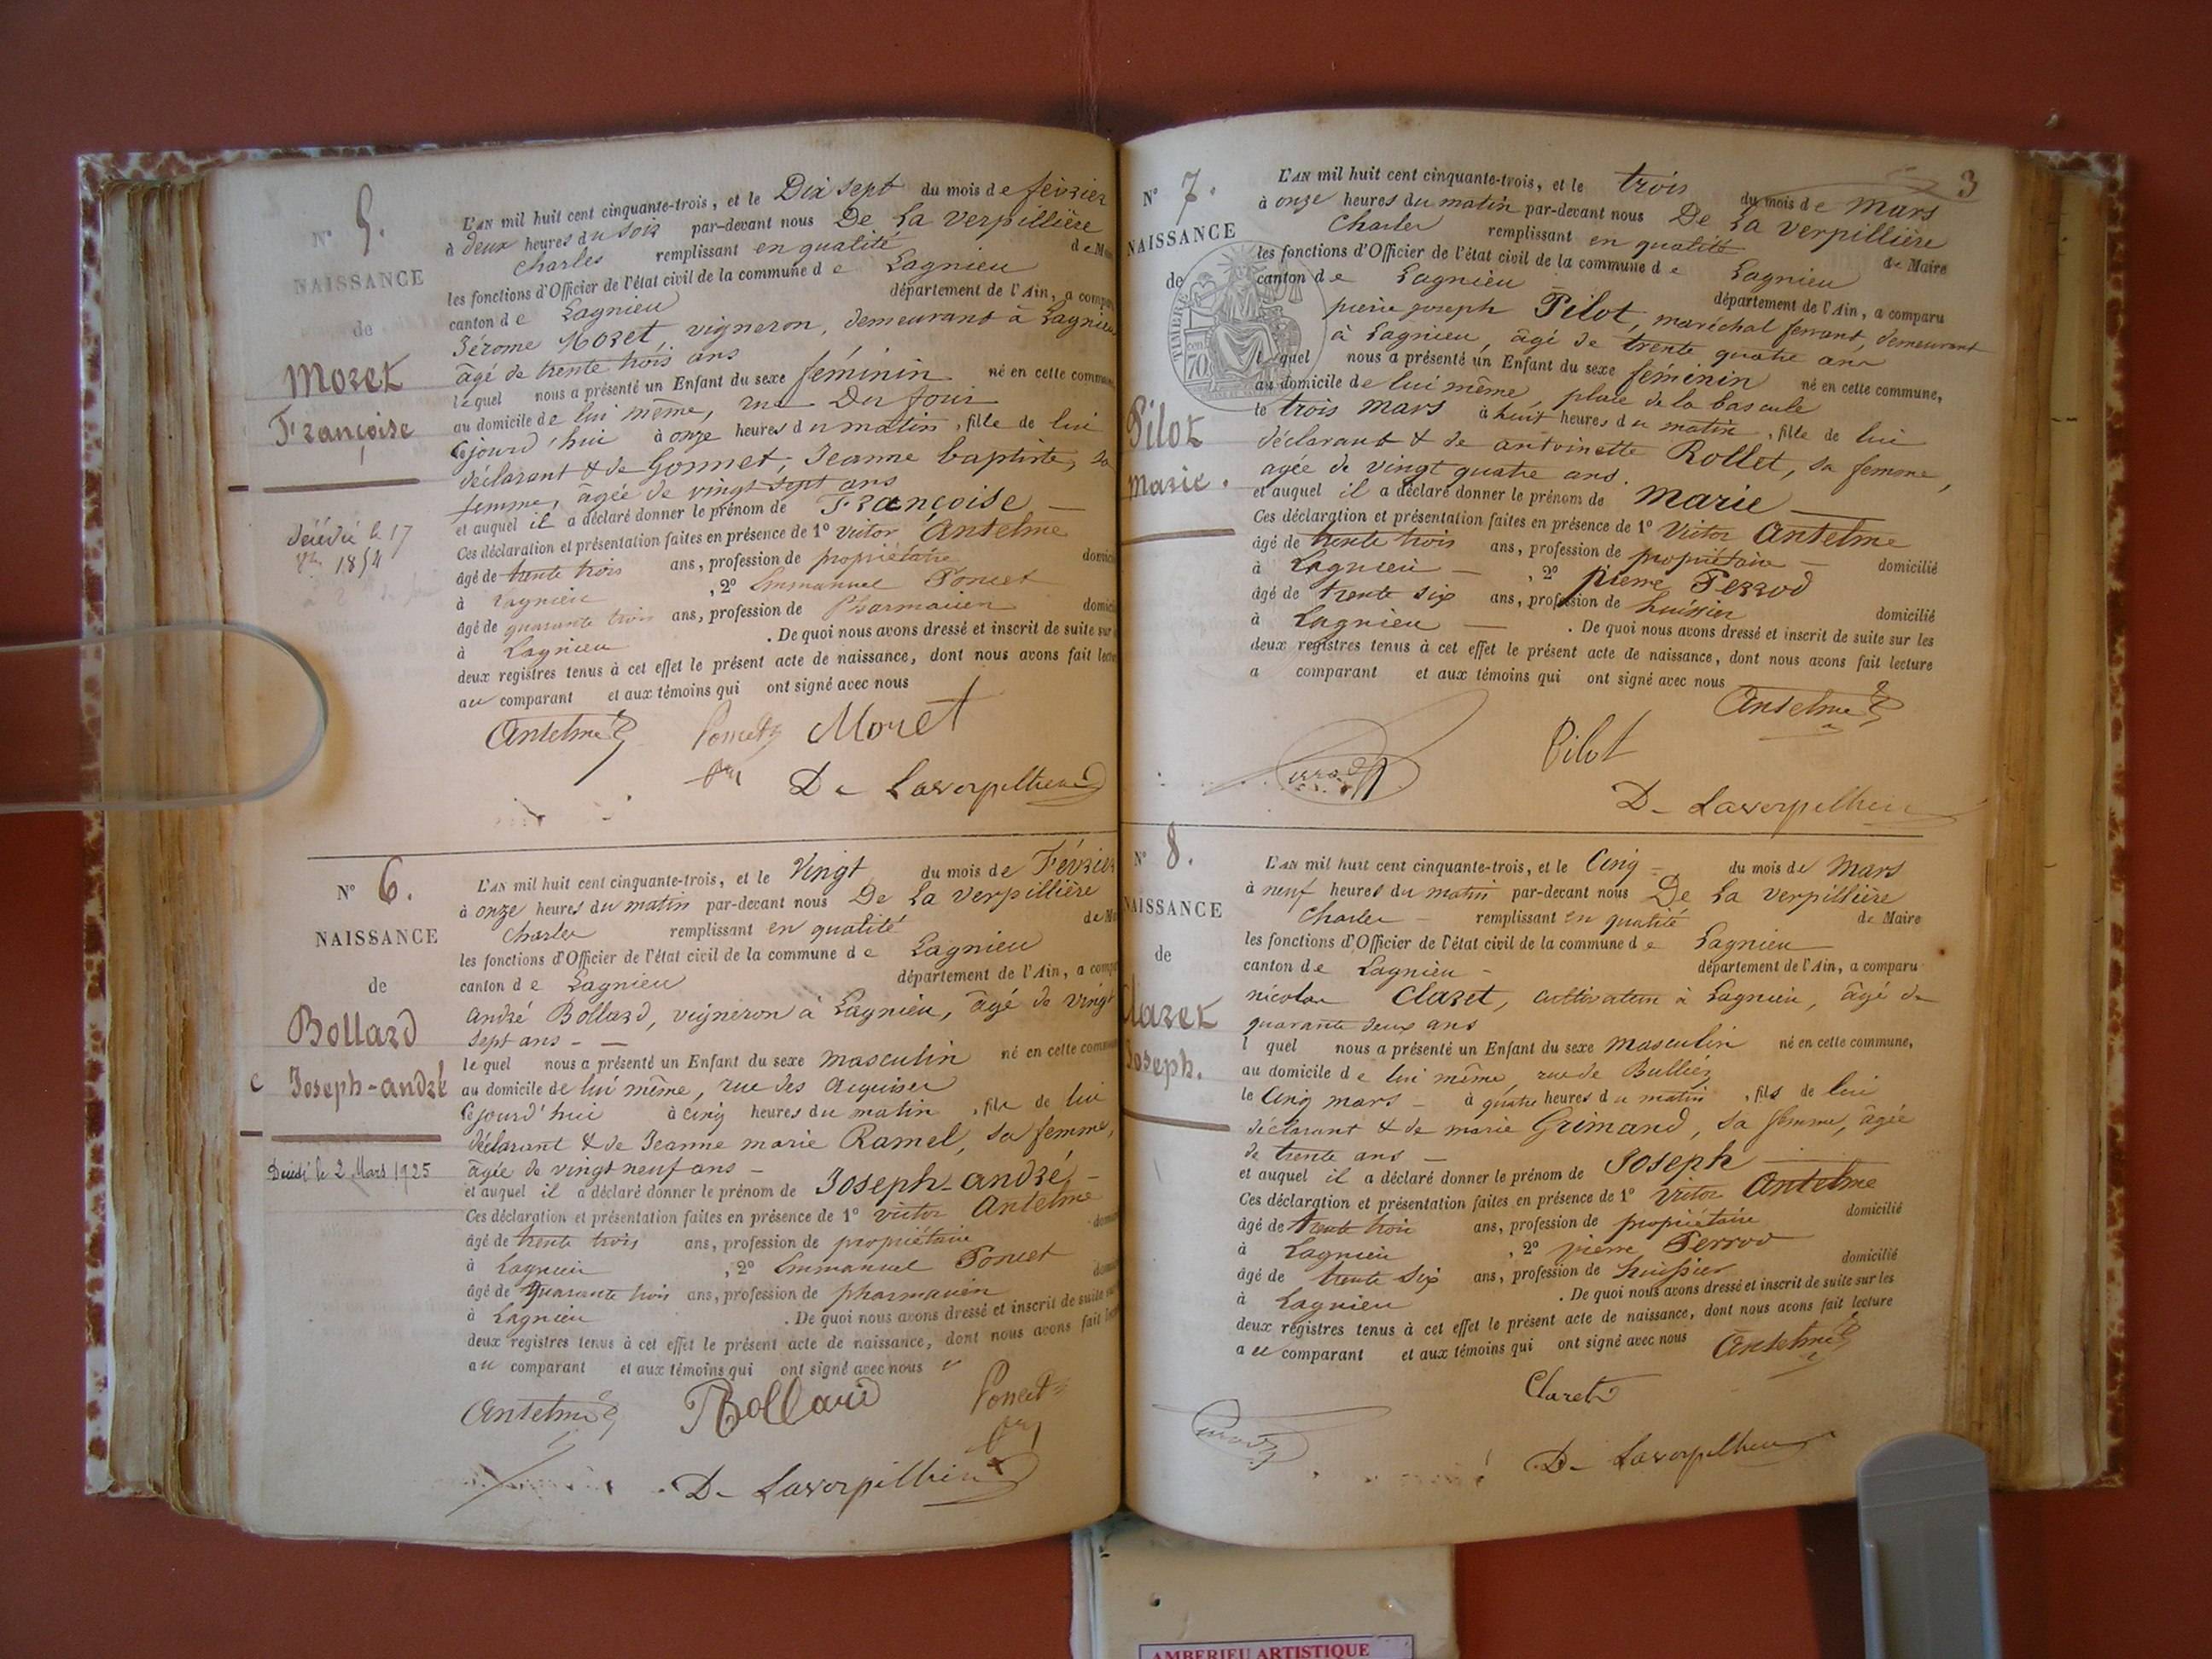 N° 5.
NAISSANCE
de
Moret
Françoise
décédé le 17
1854
L'AN mil huit cent cinquante-trois, et le Dix sept du mois de février
à deux heures du soir par-devant nous De La Verpillière
Charles remplissant en qualité de M
les fonctions d'Officier de l'état civil de la commune de Lagnieu
canton de Lagnieu département de l'Ain, a compa
Jérome Moret, vigneron, demeurant à Lagnieu
âgé de trente trois ans
lequel nous a présenté un Enfant du sexe féminin né en cette commune
au domicile de lui même, rue Du four
Cejourd'hui à onze heures du matin, fille de lui
déclarant & de Gonnet, Jeanne baptiste, sa
femme, âgée de vingt sept ans
et auquel il a déclaré donner le prénom de Françoise
Ces déclaration et présentation faites en présence de 1° Victor Antelme
âgé de trente trois ans, profession de propriétaire domici
à Lagnieu, 2° Emmanuel Poncet
âgé de quarante trois ans, profession de Pharmacien domici
à Lagnieu. De quoi nous avons dressé et inscrit de suite sur
deux registres tenus à cet effet le présent acte de naissance, dont nous avons fait lecture
au comparant et aux témoins qui ont signé avec nous
Antelme Poncet Moret
De Laverpilliere
N° 6.
NAISSANCE
de
Bollard
Joseph-andré
Décédé le 2 Mars 1925
L'AN mil huit cent cinquante-trois, et le Vingt du mois de Février
à onze heures du matin par-devant nous De La Verpillière
Charles remplissant en qualité de M
les fonctions d'Officier de l'état civil de la commune de Lagnieu
canton de Lagnieu département de l'Ain, a compa
André Bollard, vigneron à Lagnieu, âgé de vingt
sept ans
lequel nous a présenté un Enfant du sexe masculin né en cette commune
au domicile de lui même, rue des
Cejourd'hui à cinq heures du matin, fils de lui
déclarant & de Jeanne marie Ramel, sa femme,
âgée de vingt neuf ans
et auquel il a déclaré donner le prénom de Joseph-andré
Ces déclaration et présentation faites en présence de 1° victor Antelme
âgé de trente trois ans, profession de propriétaire domi
à Lagnieu, 2° Emmanuel Poncet
âgé de quarante trois ans, profession de pharmacien
à Lagnieu. De quoi nous avons dressé et inscrit de suite sur
deux registres tenus à cet effet le présent acte de naissance, dont nous avons fait
au comparant et aux témoins qui ont signé avec nous
Antelme Bollard Poncet
De Laverpilliere
3
N° 7.
NAISSANCE
de
TIMBRE
70
Pilot
marie.
L'AN mil huit cent cinquante-trois, et le trois du mois de Mars
à onze heures du matin par-devant nous De La Verpillière
Charles remplissant en qualité de Maire
les fonctions d'Officier de l'état civil de la commune de Lagnieu
canton de Lagnieu département de l'Ain, a comparu
pierre joseph Pilot, maréchal ferrant, demeurant
à Lagnieu, âgé de trente quatre ans
lequel nous a présenté un Enfant du sexe féminin né en cette commune,
au domicile de lui même, place de la bascule
le trois mars à huit heures du matin, fille de lui
déclarant & de antoinette Rollet, sa femme,
agée de vingt quatre ans.
et auquel il a déclaré donner le prénom de Marie
Ces déclaration et présentation faites en présence de 1° Victor Antelme
âgé de trente trois ans, profession de propriétaire domicilié
à Lagnieu, 2° pierre Perrod
âgé de trente six ans, profession de huissier domicilié
à Lagnieu. De quoi nous avons dressé et inscrit de suite sur les
deux registres tenus à cet effet le présent acte de naissance, dont nous avons fait lecture
a comparant et aux témoins qui ont signé avec nous
Antelme
Perrod Pilot
De Laverpilliere
N° 8.
NAISSANCE
de
Claret
Joseph.
L'AN mil huit cent cinquante-trois, et le Cinq du mois de Mars
à neuf heures du matin par-devant nous De La Verpillière
Charles remplissant en qualité de Maire
les fonctions d'Officier de l'état civil de la commune de Lagnieu
canton de Lagnieu département de l'Ain, a comparu
nicolas Claret, cultivateur à Lagnieu, âgé de
quarante deux ans
l quel nous a présenté un Enfant du sexe masculin né en cette commune,
au domicile de lui même, rue de Bulliez
le Cinq mars à quatre heures du matin, fils de lui
déclarant & de marie Grimand, sa femme, âgée
de trente ans
et auquel il a déclaré donner le prénom de Joseph
Ces déclaration et présentation faites en présence de 1° Victor Antelme
âgé de trente trois ans, profession de propriétaire domicilié
à Lagnieu, 2° pierre Perrod
âgé de trente six ans, profession de huissier domicilié
à Lagnieu. De quoi nous avons dressé et inscrit de suite sur les
deux registres tenus à cet effet le présent acte de naissance, dont nous avons fait lecture
au comparant et aux témoins qui ont signé avec nous Antelme
Claret
Perrod
De Laverpilliere
AMBERIEU ARTISTIQUE